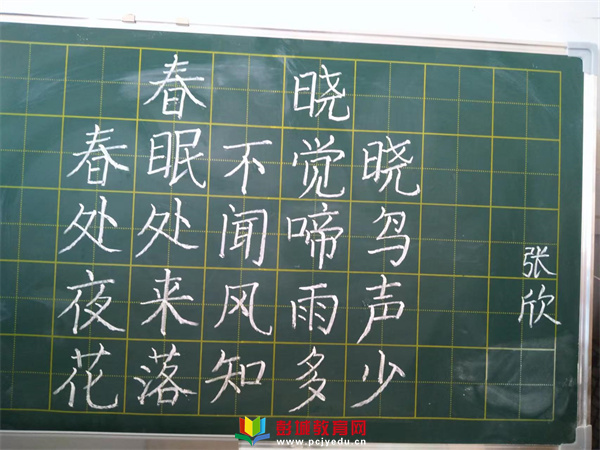 春 晓
春眠不觉晓
处处闻啼鸟
夜来风雨声
花落知多少
张欣
彭城教育网
www.pcjyedu.cn